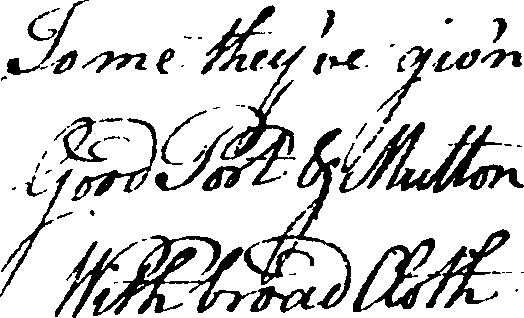 Some they've giv'n
Good Port & Mutton
With broad Cloth